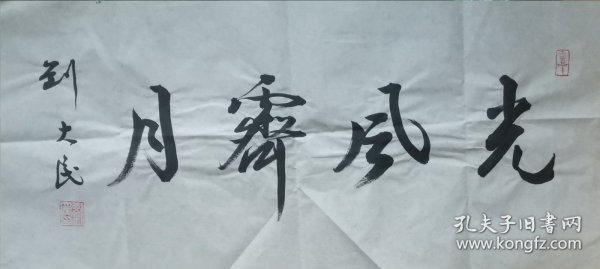 光风霽月
刘大民
孔夫子旧书网
www.kongfz.com